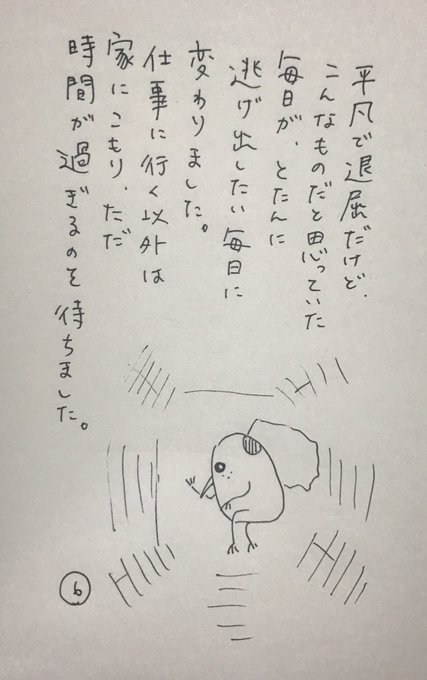 平凡で退屈だけど、
こんなものだと思っていた
毎日が、とたんに
逃げ出したい毎日に
変わりました。
仕事に行く以外は
家にこもり、ただ
時間が過ぎるのを待ちました。
6